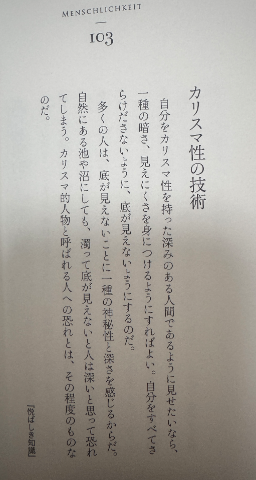 MENSCHLICHKEIT
103
カリスマ性の技術
自分をカリスマ性を持った深みのある人間であるように見せたいなら、
一種の暗さ、見えにくさを身につけるようにすればよい。自分をすべてさ
らけださないように、底が見えないようにするのだ。
多くの人は、底が見えないことに一種の神秘性と深さを感じるからだ。
自然にある池や沼にしても、濁って底が見えないと人は深いと思って恐れ
てしまう。カリスマ的人物と呼ばれる人への恐れとは、その程度のものな
のだ。
『悦ばしき知識』